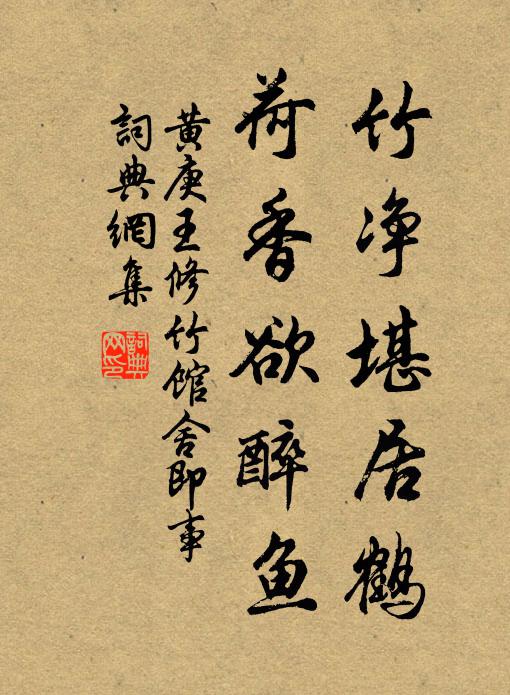 竹净堪居鹤
荷香欲醉鱼
黄庚王修竹馆舍即事
詞典網集
詞典网印